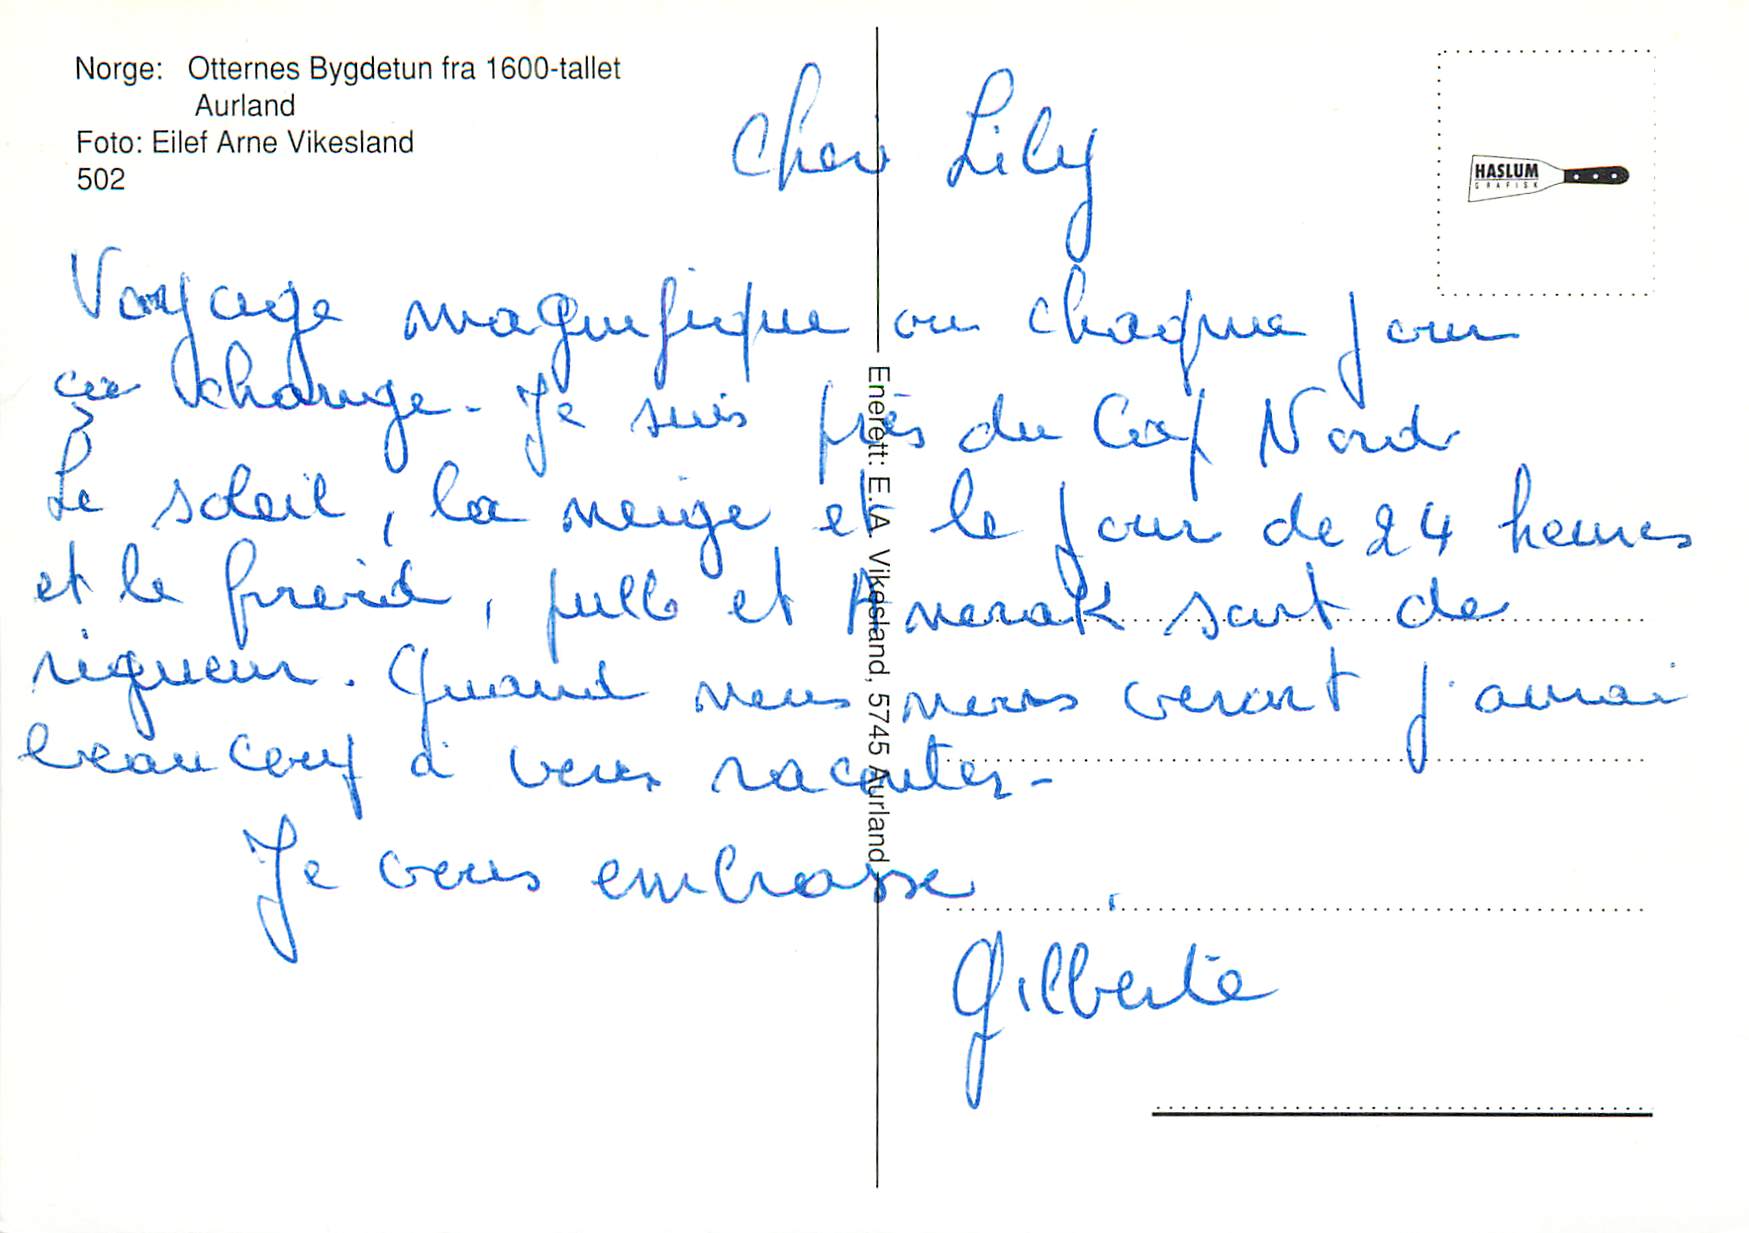 Norge: Otternes Bygdetun fra 1600-tallet
Aurland
Foto: Eilef Arne Vikesland
502
HASLUM
GRAFISK
Cher Lily
Voyage magnifique ou chaque jour
ça change - Je suis près du Cap Nord
Le soleil, la neige et le jour de 24 heures
et le froid, pull et Anorak sont de
rigueur. Quand nous nous veront j'aurai
beaucoup à vous raconter -
Je vous embrasse.
Gilberte
Enerett: E. A. Vikesland, 5745 Aurland